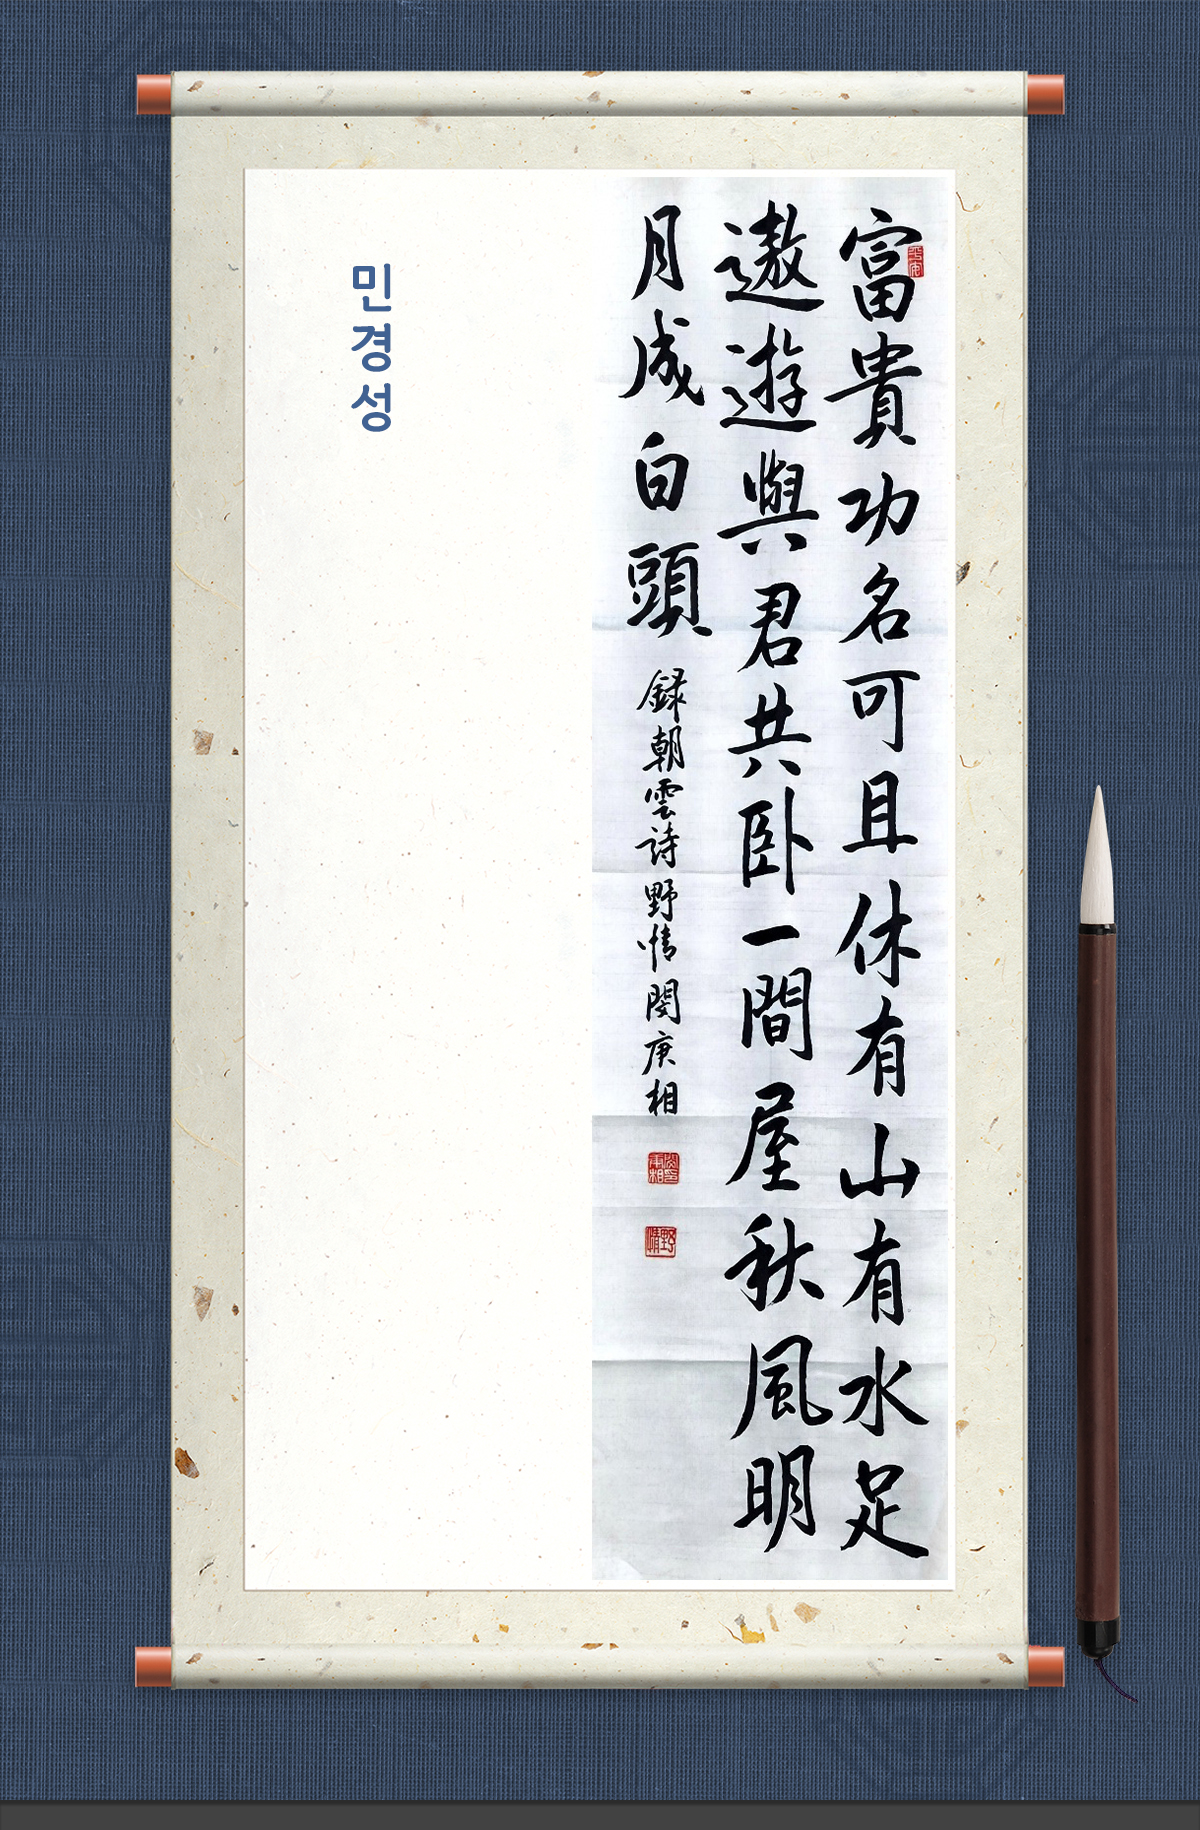 富貴功名可且休有山有水足
遨遊與君共卧一間屋秋風明
月成白頭
録朝雲詩 野情 閔庚相
민경성